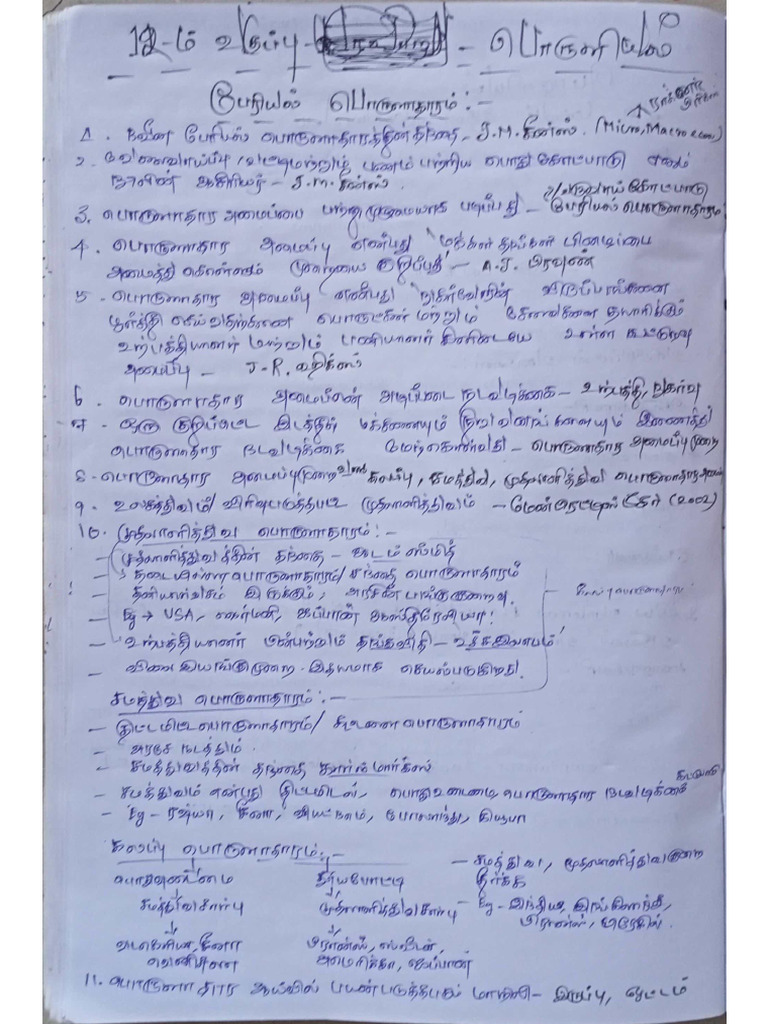 12-ம் வகுப்பு - பொருளியல்
பேரியல் பொருளாதாரம் :-
1. நவீன பேரியல் பொருளாதாரத்தின் தந்தை - J.M. கீன்ஸ். (Micro, Macro
2. வேலைவாய்ப்பு, வட்டி மற்றும் பணம் பற்றிய பொது கோட்பாடு எனும்
நூலின் ஆசிரியர் - J.M. கீன்ஸ்.
வருவாய் கோட்பாடு
3. பொருளாதார அமைப்பை பற்றி முழுமையாக படிப்பது - பேரியல் பொருளாதாரம்
4. பொருளாதார அமைப்பு என்பது மக்கள் தங்கள் பிழைப்பை
அமைத்து கொள்ளும் முறையை குறிப்பது - A.J. பிரவுண்
5. பொருளாதார அமைப்பு என்பது நுகர்வோரின் விருப்பங்களை
பூர்த்தி செய்வதற்கான பொருட்கள் மற்றும் சேவைகளை தயாரிக்கும்
உற்பத்தியாளர் மற்றும் பணியாளர்களிடையே உள்ள கூட்டுறவு
அமைப்பு - J.R. ஹிக்ஸ்
6. பொருளாதார அமைப்பின் அடிப்படை நடவடிக்கை - உற்பத்தி, நுகர்வு
7. ஒரு குறிப்பிட்ட இடத்தில் மக்களையும் நிறுவனங்களையும் இணைத்து
பொருளாதார நடவடிக்கை மேற்கொள்வது - பொருளாதார அமைப்பு முறை
8. பொருளாதார அமைப்புமுறை வகை கலப்பு, சமத்துவ, முதலாளித்துவ பொருளாதார
9. உலகத்துவம்/விரிவுபடுத்தப்பட்ட முதலாளித்துவம் - (2002)
10. முதலாளித்துவ பொருளாதாரம் :-
- முதலாளித்துவத்தின் தந்தை - ஆடம் ஸ்மித்
- தடையில்லா பொருளாதாரம்/ சந்தை பொருளாதாரம்
- தனியார்வசம் இருக்கும், அரசின் பங்கு குறைவு.
- Eg → USA, ஜெர்மனி, ஜப்பான் ஆஸ்திரேலியா
- உற்பத்தியாளர் பின்பற்றும் தங்கவிதி - உச்சஇலாபம்
- விலை இயங்குமுறை இதயமாக செயல்படுகிறது.
சமத்துவ பொருளாதாரம் :-
- திட்டமிட்ட பொருளாதாரம்/ கட்டளை பொருளாதாரம்
- அரசு நடத்தும்.
- சமத்துவத்தின் தந்தை கார்ல் மார்க்ஸ்
- சமத்துவம் என்பது திட்டமிடல், பொது உடைமை, பொருளாதார நடவடிக்கை
- Eg - ரஷ்யா, சீனா, வியட்நாம், போலந்து, கியூபா
கலப்பு பொருளாதாரம் :-
- சமத்துவ, முதலாளித்துவ குறை
தீர்க்க
சமத்துவசார்பு முதலாளித்துவசார்பு - Eg - இந்தியா, இங்கிலாந்து,
பிரான்ஸ், பிரேசில்.
சீனா பிரான்ஸ், ஸ்வீடன்,
அமெரிக்கா, ஜப்பான்
11. பொருளாதார ஆய்வில் பயன்படுத்தப்படும் மாறிலி - இருப்பு, ஓட்டம்